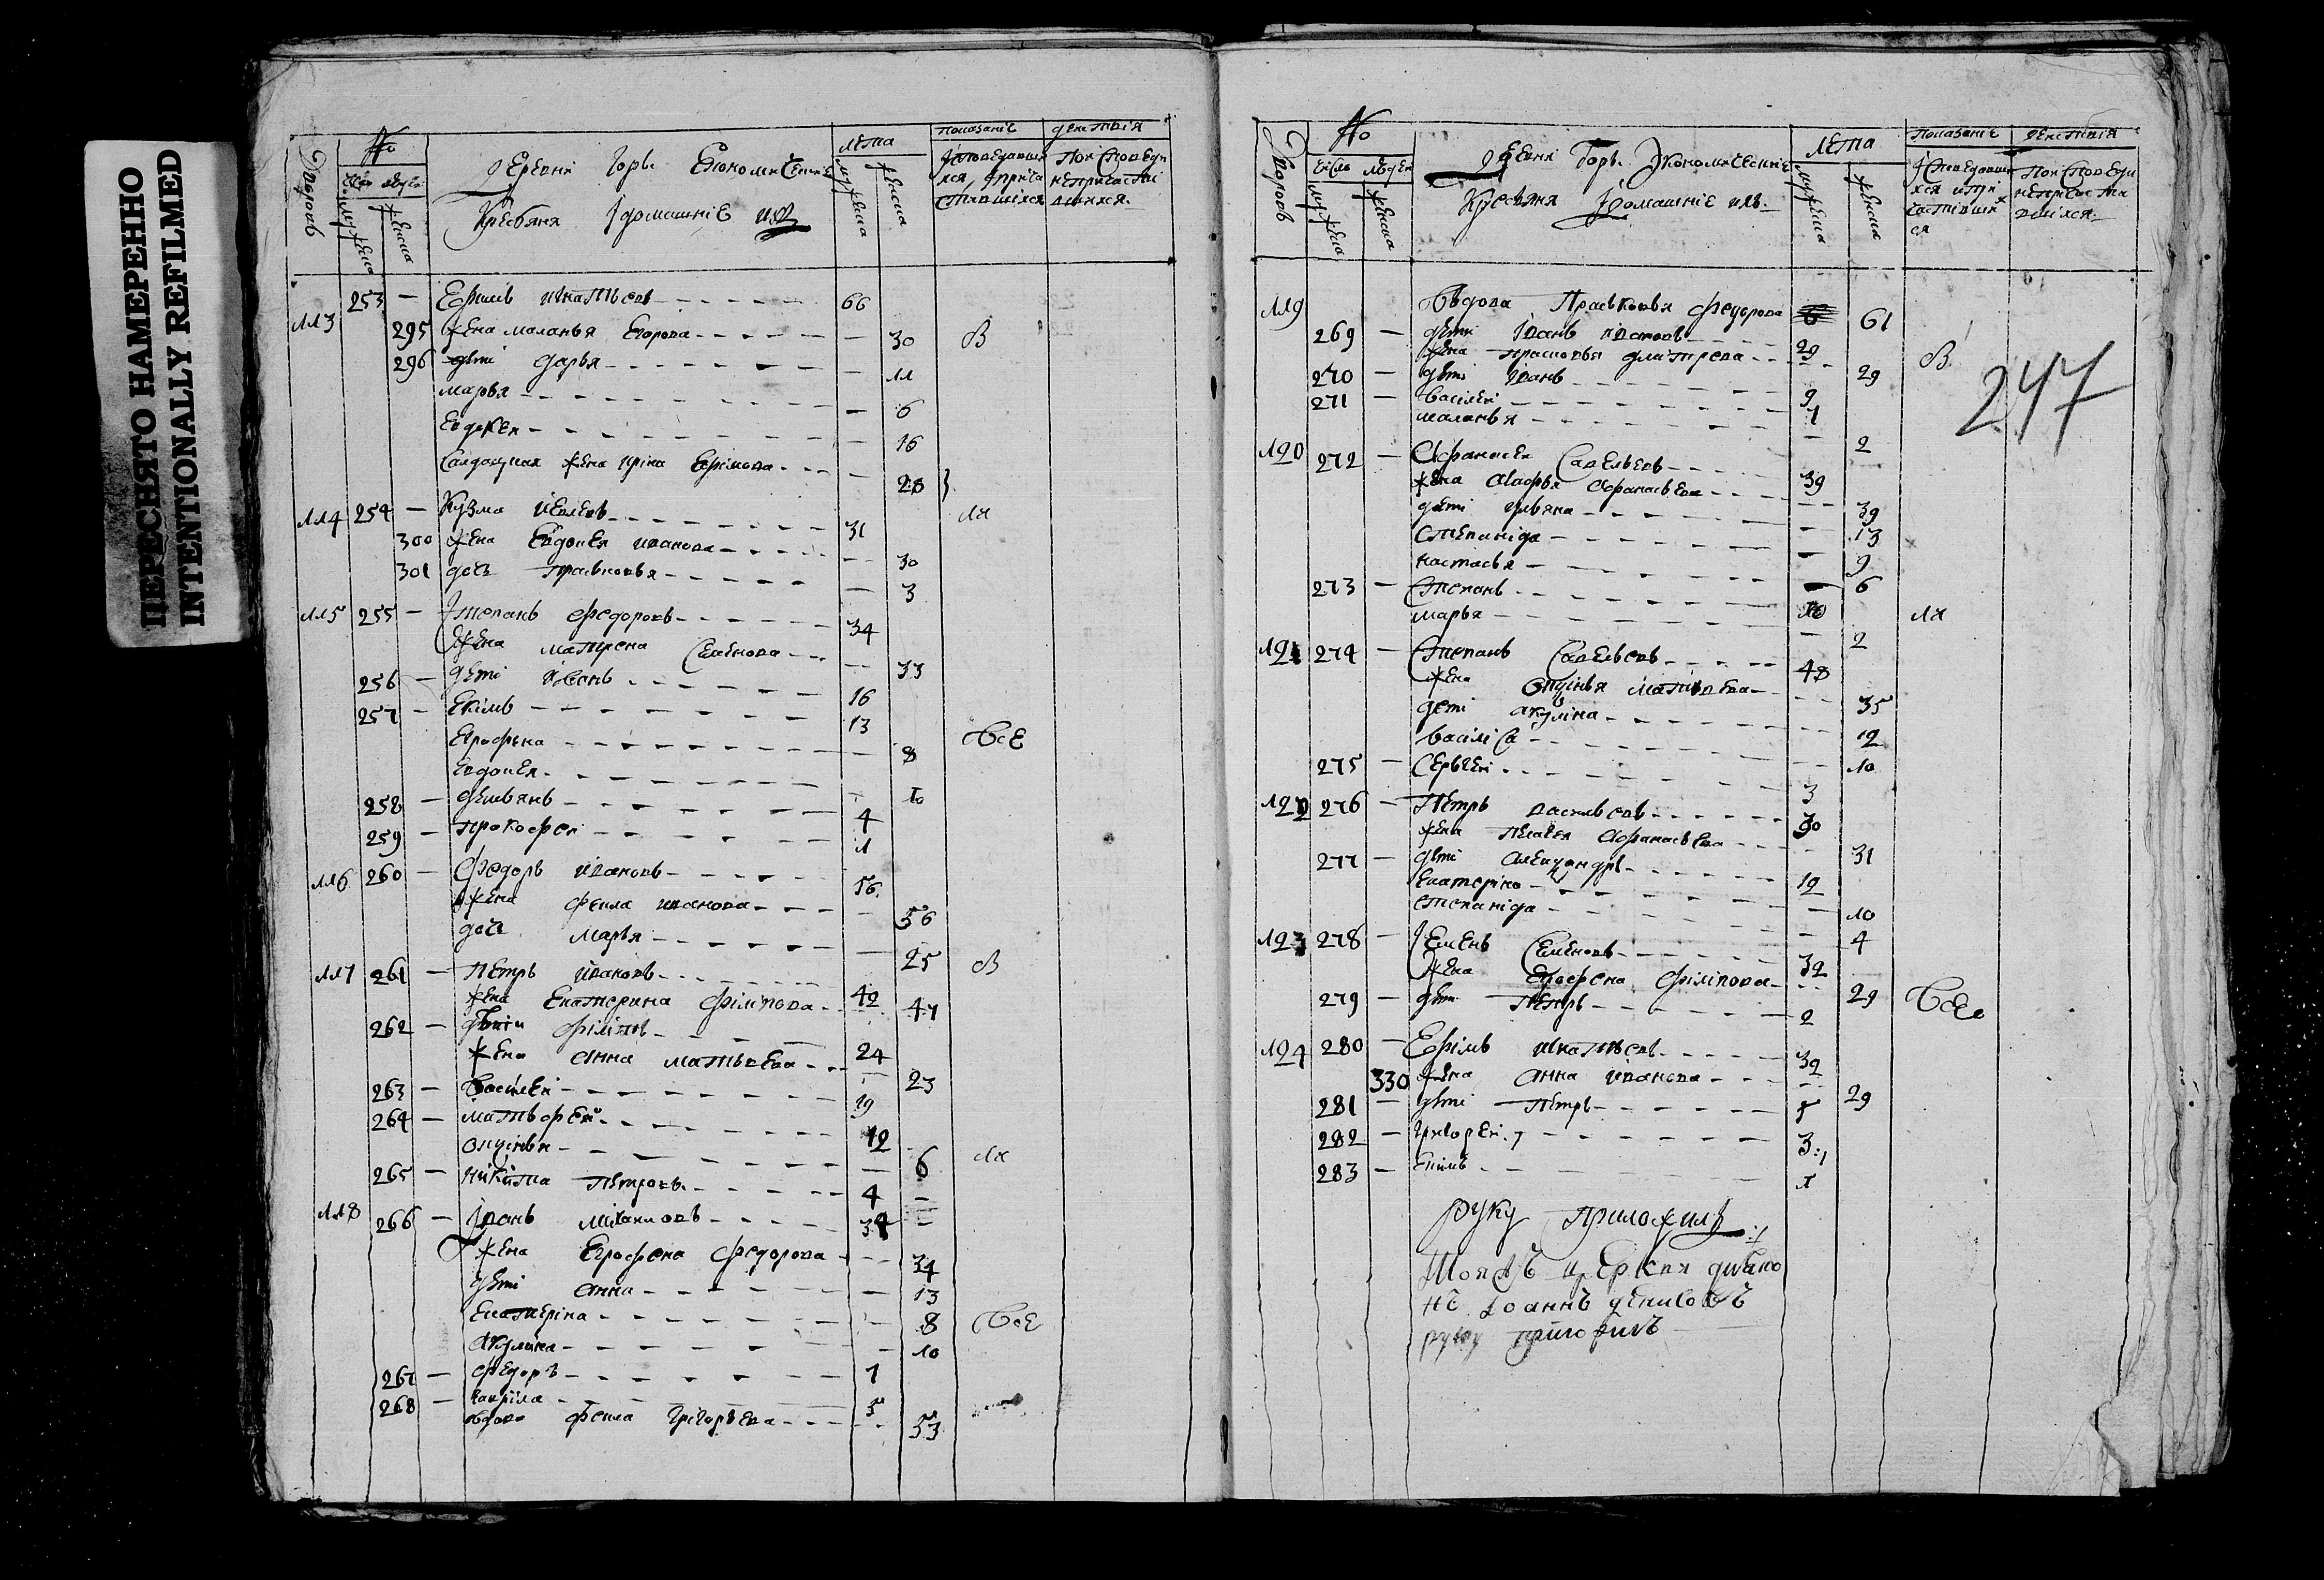 ПЕРЕСНЯТО НАМЕРЕННО
INTENTIONALLY REFILMED
Дворовъ
№
мужеска
женска
деревни Горъ Економические
Крестьяня и домашние ихъ
лета
мужеска
женска
показание действия
Исповедавши
хся, и прича
стившихся
Поисповеди
непричасти
вшихся.
253 — Ефимъ Игнатьевъ 66
113 295 жена маланья Егорова — 30 В
296 дети Дарья — 11
марья — 6
Евдокея — 16
Салдацкая жена ирина Ефимова — 28
114 254 — Кузма 31 ля
300 жена Евдокея иванова — 30
301 дочь прасковья — 3
115 255 — Степанъ Федоровъ 34
жена матрена Семенова — 33
256 — дети Иванъ 16
257 — Екимъ 13
Еврофена — 8 Все
Евдокея — 10
258 — демьянъ 4
259 — прокофеи 1
116 260 — Федоръ ивановъ 56
жена фекла иванова — 56
дочь марья — 25 В
117 261 — петръ ивановъ 42
жена Екатерина Филипова — 41
262 — дети филипъ 24
жена анна матвеева — 23
263 — Василеи 19
264 — матвофеи 12
опуцинья — 6 ля
265 — никита петровъ 4 —
118 266 — Иванъ михаиловъ 34 —
жена Еврофена федорова — 34
дети анна — 13
Екатерина — 8 Все
акулина — 10
267 — федоръ 7
268 — Гаврила 5
вдова фекла григорьева — 53
Дворовъ
№
число людей
мужеска
женска
деревни Горъ Економические
Крестьяня и домашние ихъ
лета
мужеска
женска
показание действия
Исповедавши
хся и при
частивши
ся
Поисповеди
непричасти
вшихся.
119 Вдова Прасковья федорова 61
269 — дети Иванъ ивановъ 29
жена прасковья дмитрева — 29 В
270 — дети Иванъ 9
271 — василеи 7
маланья — 2
247
120 272 — Афанасеи Савельевъ 39
жена Марфа Афанасьева — 39
дети ульяна — 13
степанида — 9
настасья — 6
273 — Степанъ 10
марья — 2 ля
121 274 — Степанъ Савельевъ 48
жена матвеева — 35
дети акулина — 12
василиса — 10
275 — Сергеи 3
122 276 — Петръ васильевъ 30
жена пелагея Афанасьева — 31
277 — дети александръ 12
Екатерина — 10
степанида — 4
123 278 — Семенъ Семеновъ 32
жена Еврофена филипова — 29 Все
279 — дети петръ 2
124 280 — Ефимъ Игнатьевъ 32
330 жена анна иванова — 29
281 — дети петръ 5
282 — григореи 3
283 — Екимъ 1
руку приложилъ
тояжъ церкви диако
нъ Иоаннъ
руку приложилъ